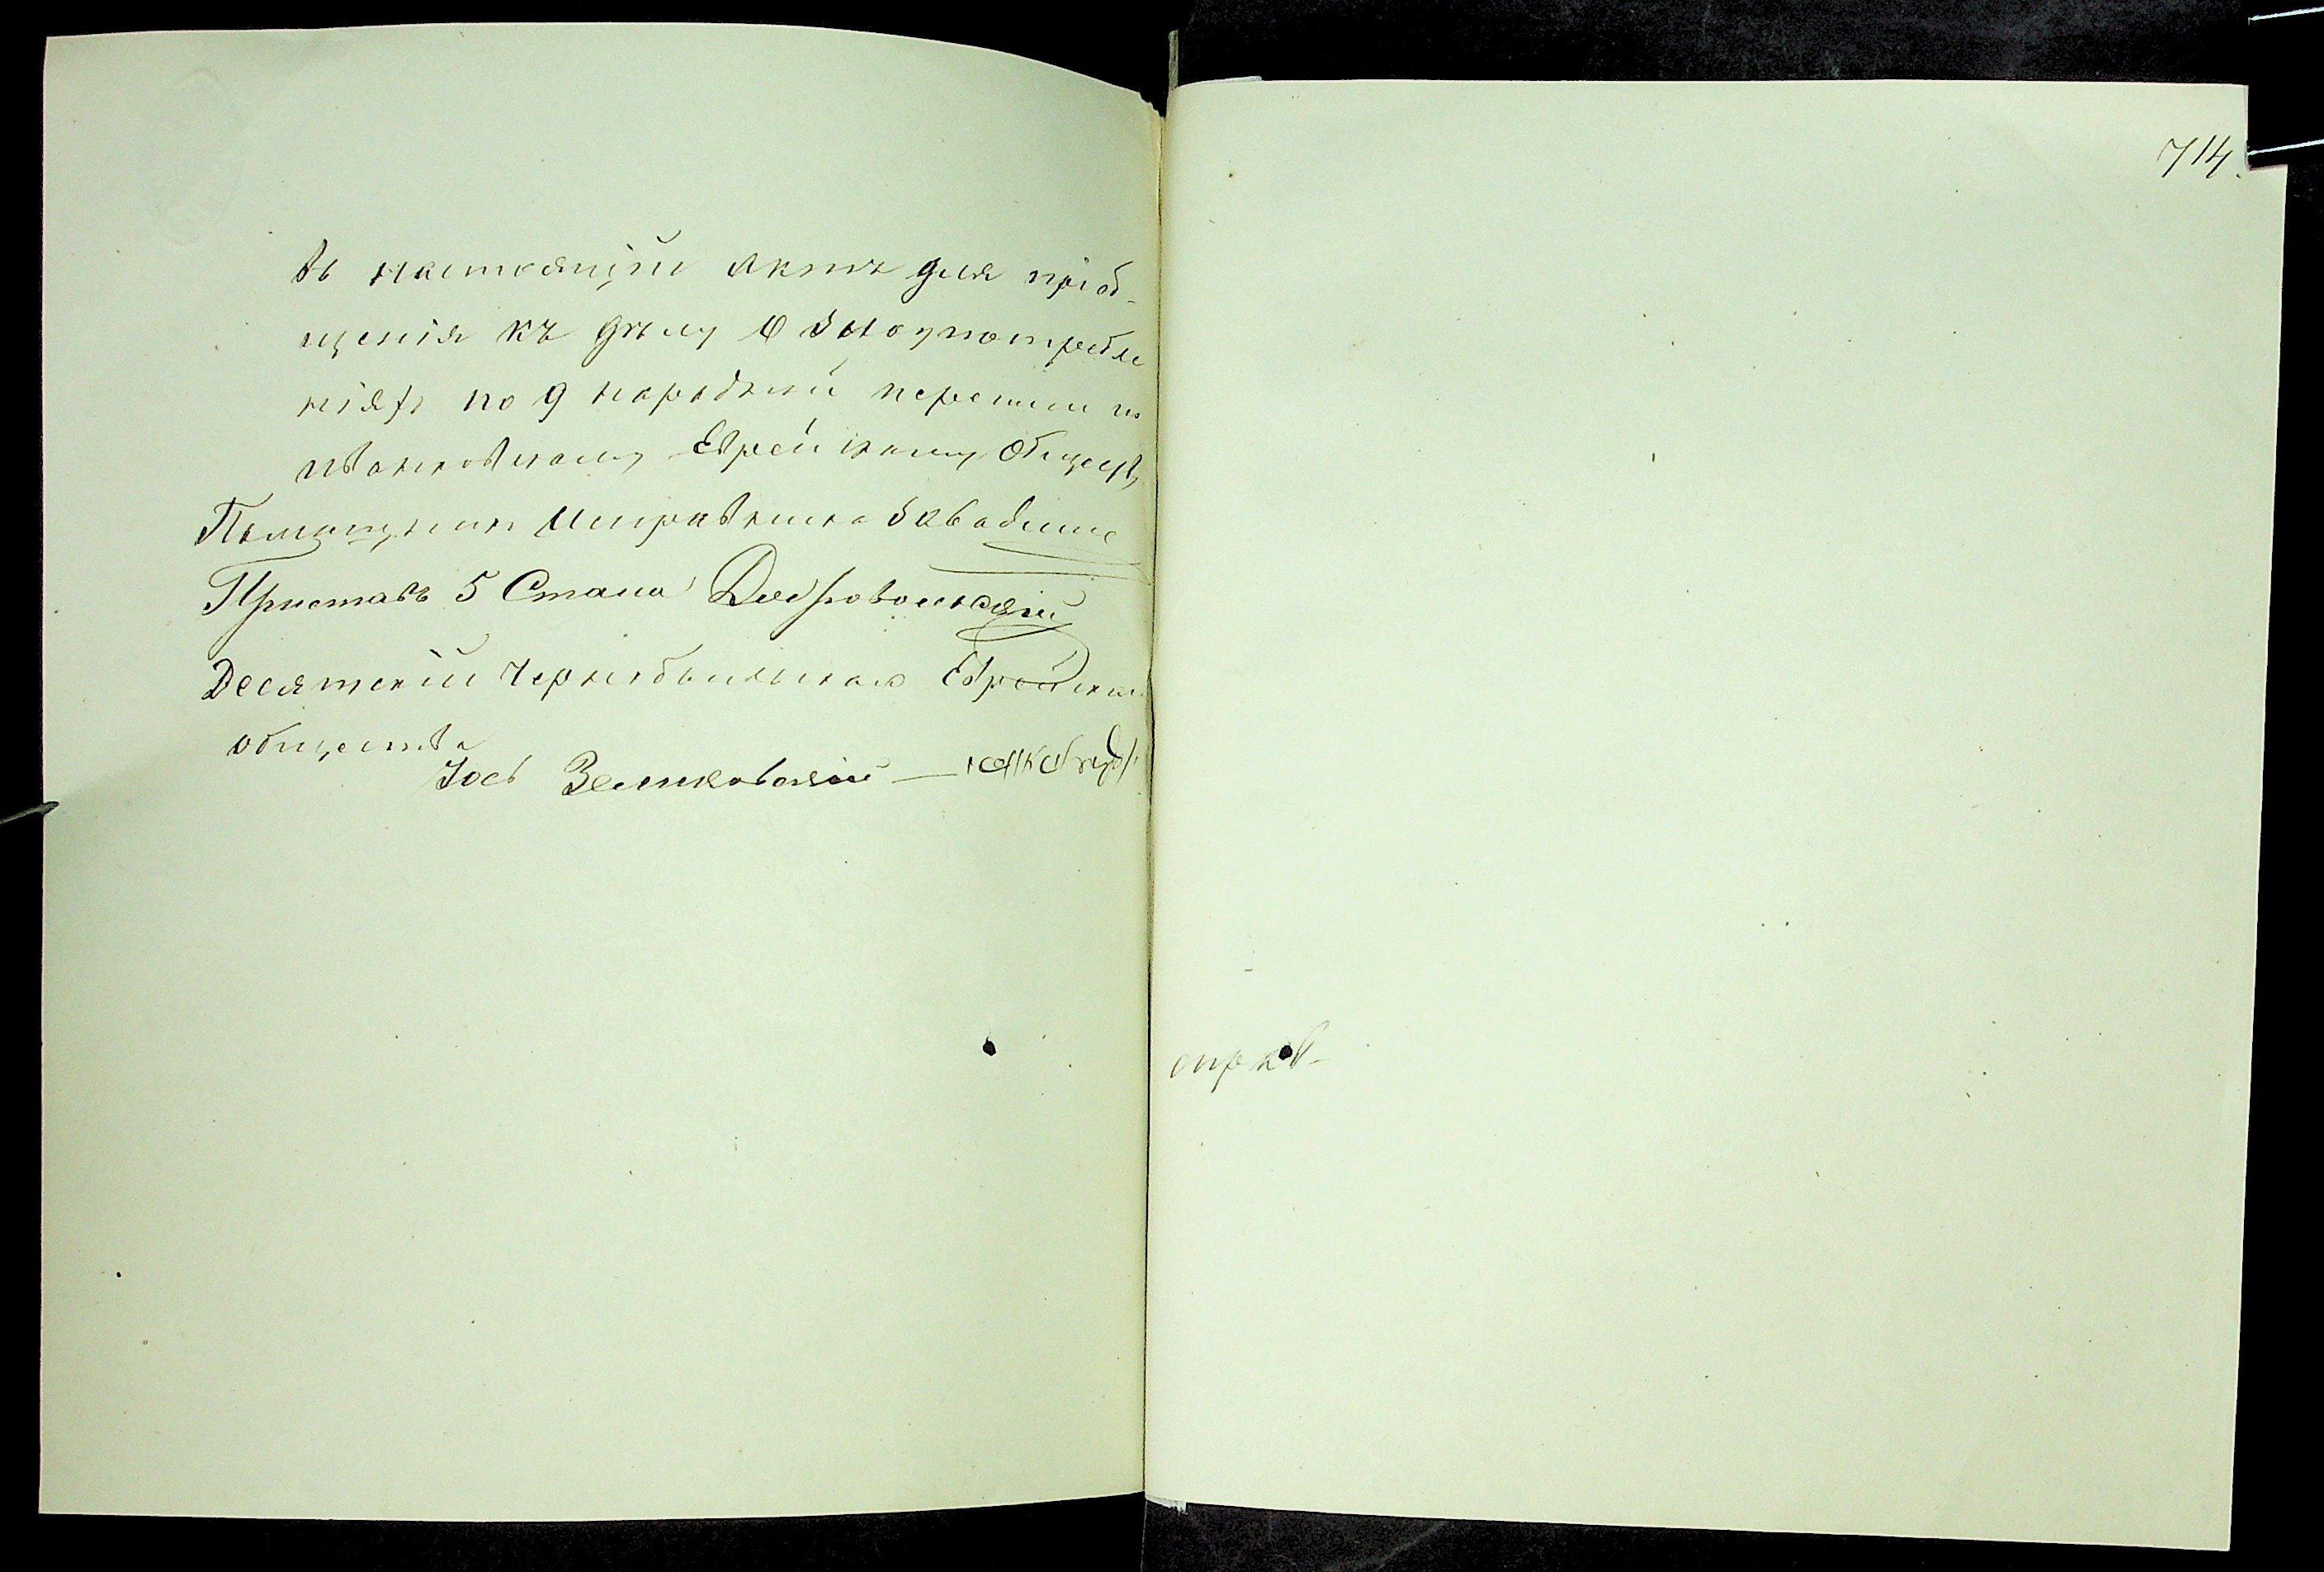 въ настоящій актъ для пріоб-
щенія къ дѣлу о злоупотребле
ніяхъ по 9 народной переписи по
Иванковскому Еврейскому Обществу
Помощникъ Исправника
Приставъ 5 Стана Добровольскій
Десятскій Чернобыльскаго Еврейскаго
общества
Іось Зеликовскій
714.
справ-